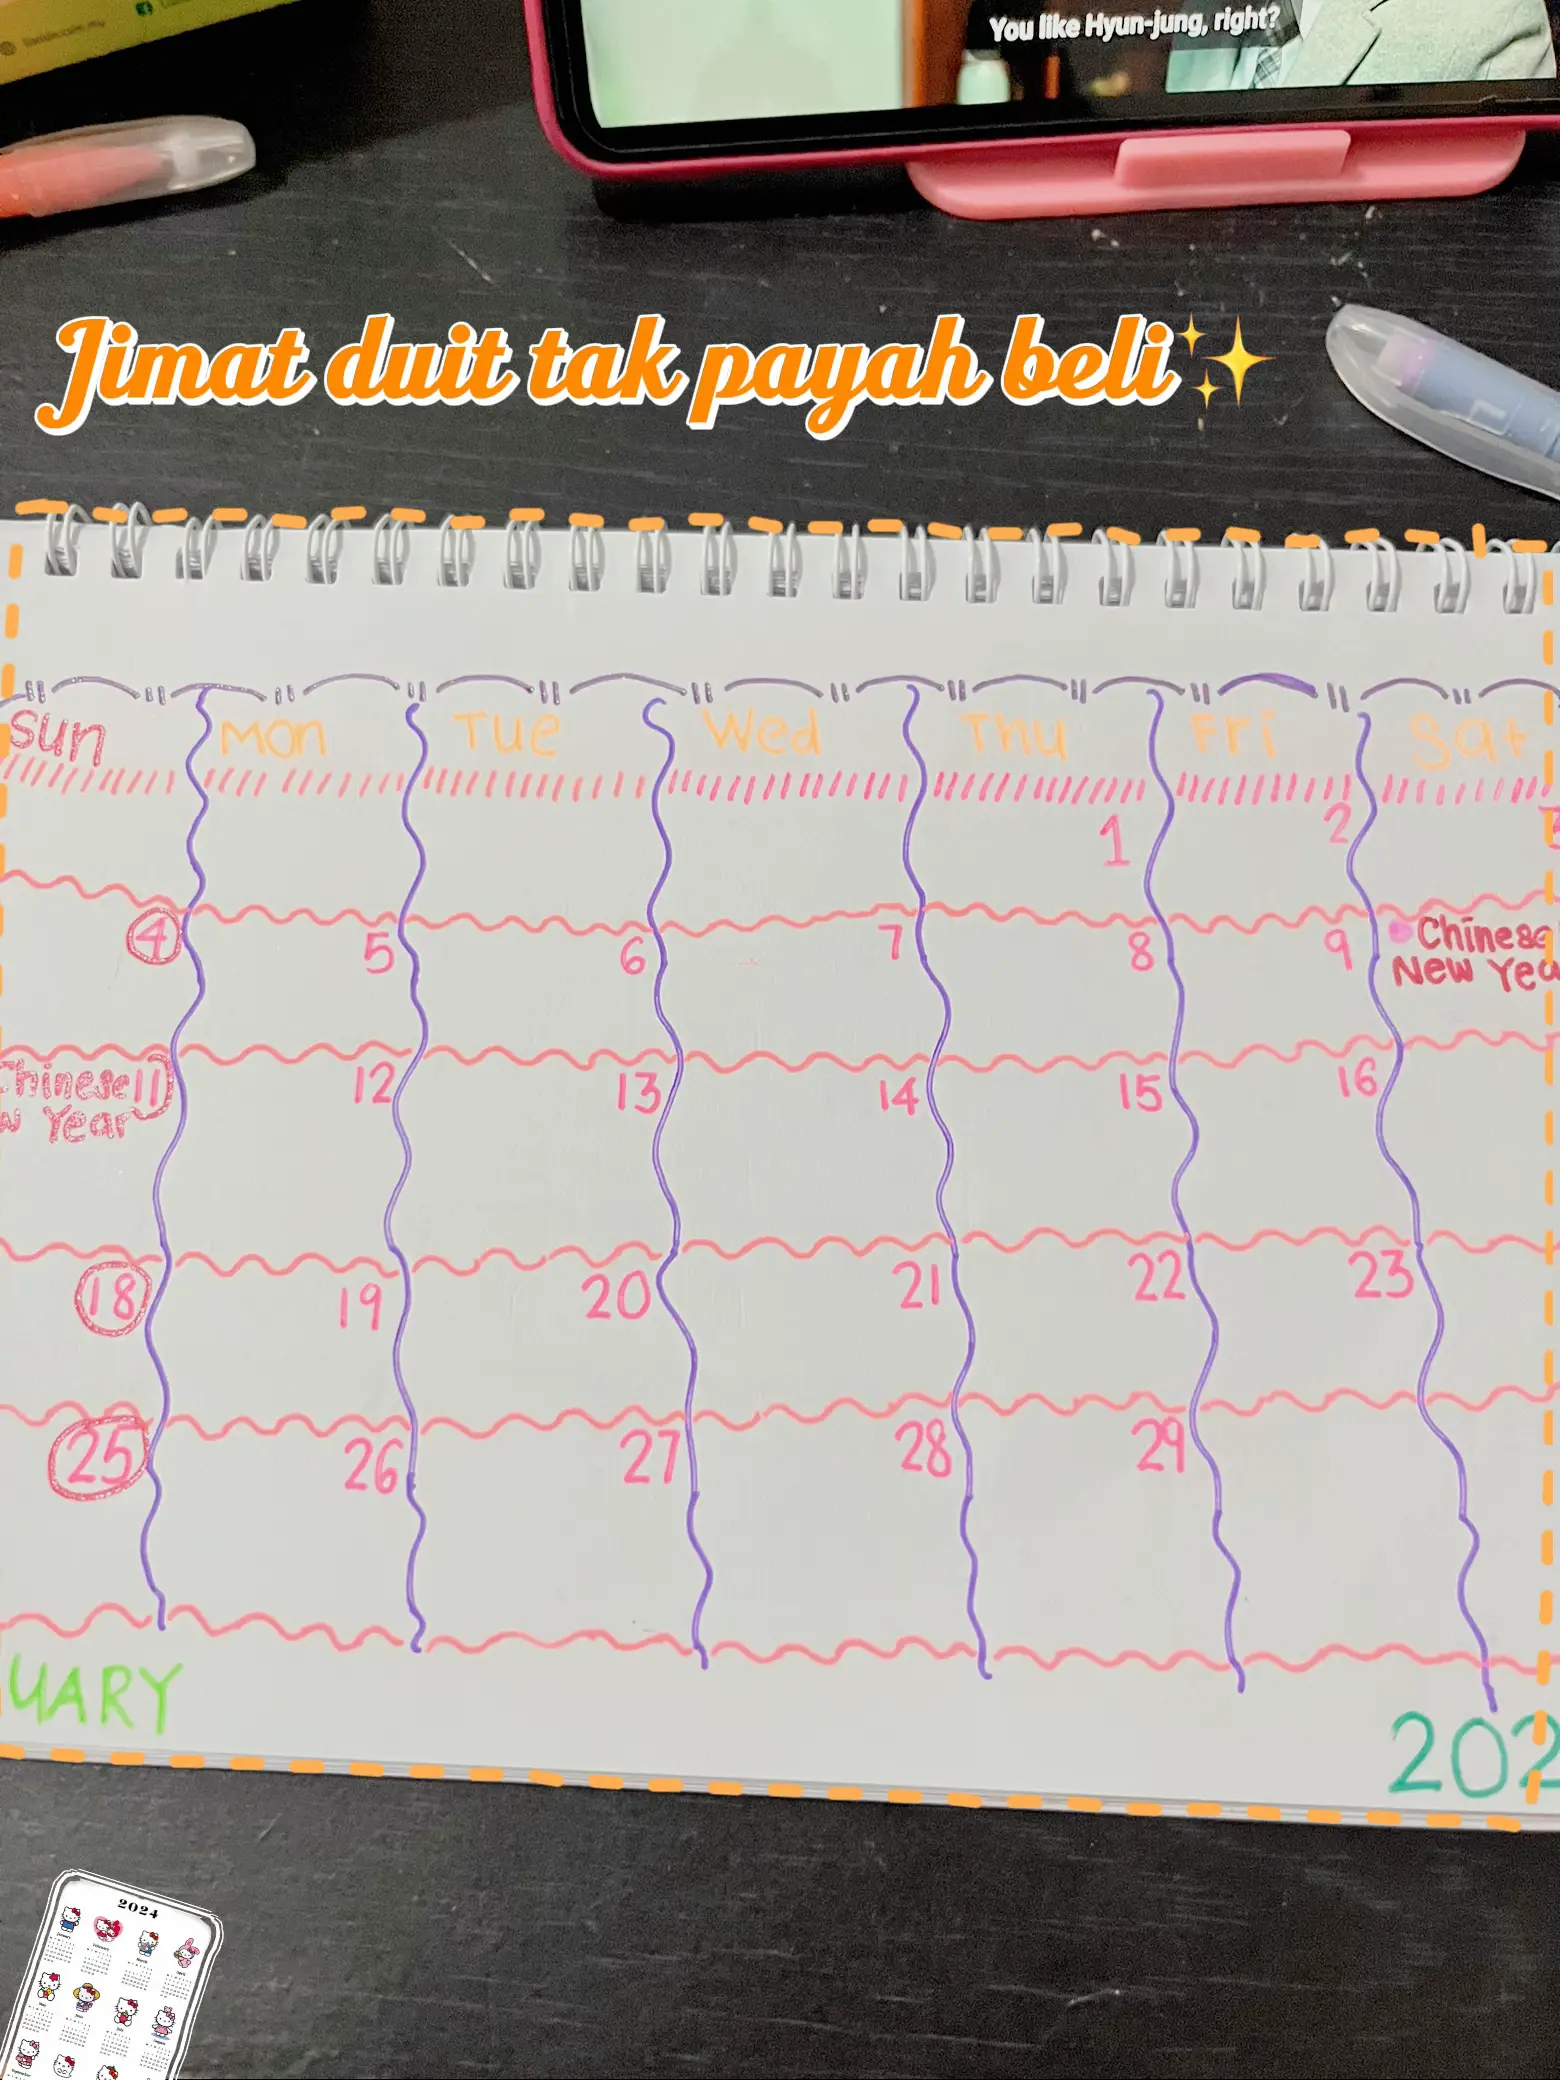 You like Hyun-jung, right?
Jimat duit tak payah beli✨
Sun Mon Tue Wed Thu Fri Sat
1 2
4 5 6 7 8 9 Chinese
New Yea
Chinese 11 12 13 14 15 16
w Year
18 19 20 21 22 23
25 26 27 28 29
UARY
202
2024